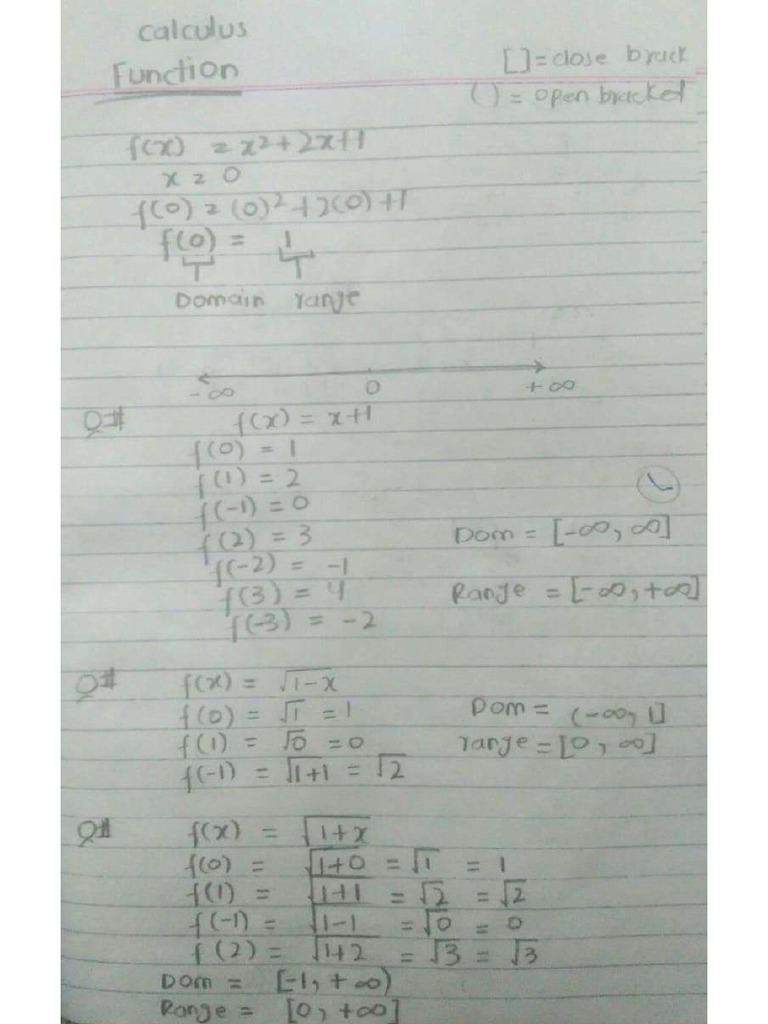 calculus
Function
[] = close brack
() = open bracket
f(x) = x2 + 2x+1
x = 0
f(0) = (0)² + 2(0) +1
f(0) = 1
Domain range
-∞ 0 +∞
Q# f(x) = x+1
f(0) = 1
f(1) = 2
f(-1) = 0
f(2) = 3 Dom = [-∞, ∞]
f(-2) = -1
f(3) = 4 Range = [-∞, +∞]
f(-3) = -2
Q# f(x) = √1-x
f(0) = √1 = 1 Dom = (-∞, 1]
f(1) = √0 = 0 range = [0, ∞]
f(-1) = √1+1 = √2
Q# f(x) = √1+x
f(0) = √1+0 = √1 = 1
f(1) = √1+1 = √2 = √2
f(-1) = √1-1 = √0 = 0
f(2) = √1+2 = √3 = √3
Dom = [-1, +∞)
Range = [0, +∞]